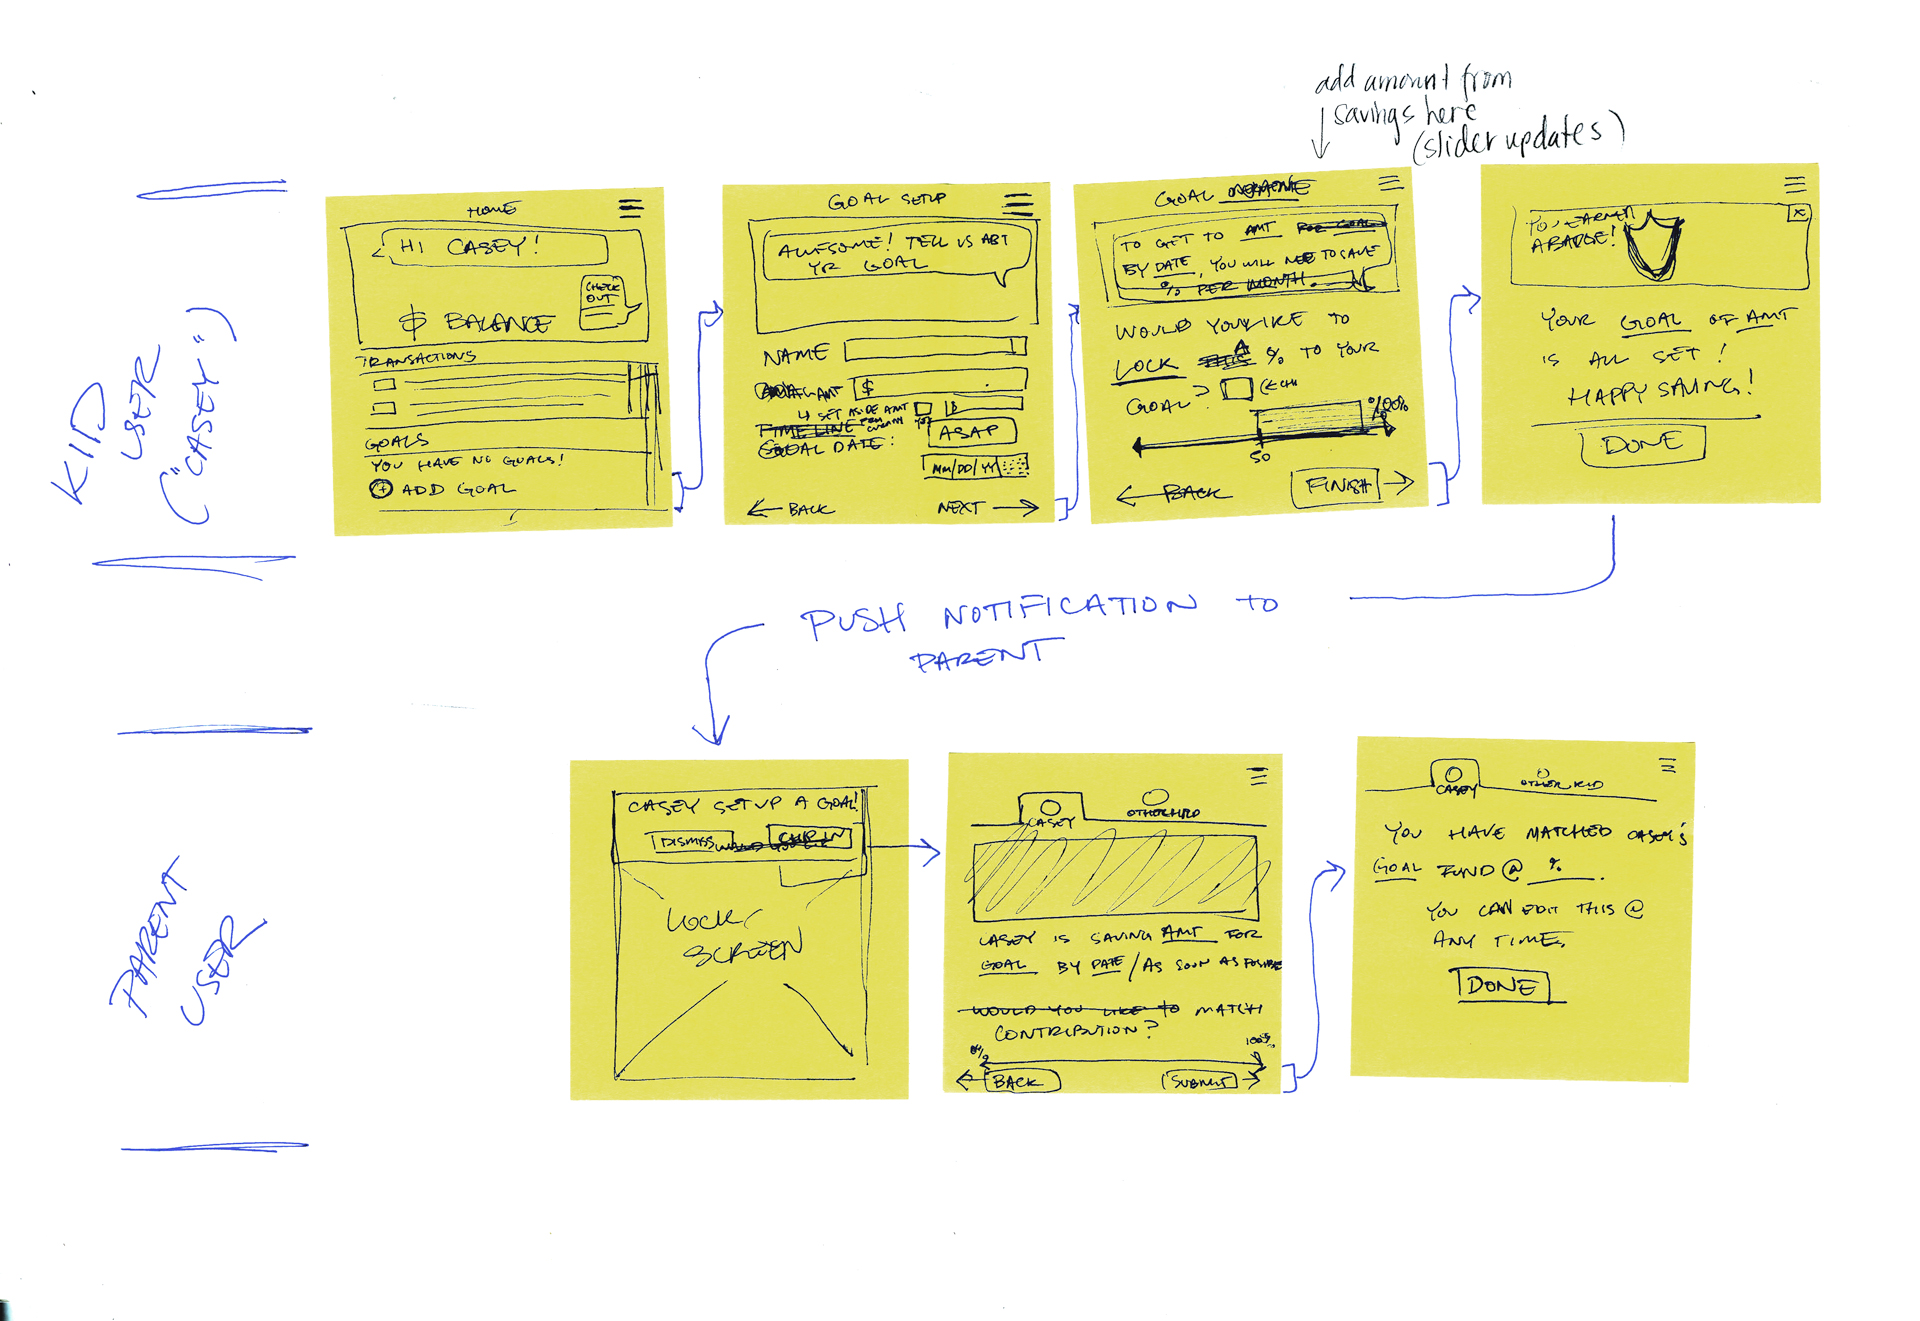 add amount from
savings here
(slider updates)
KID
USER
("CASEY")
HOME
HI CASEY!
CHECK
OUT
$ BALANCE
TRANSACTIONS
GOALS
YOU HAVE NO GOALS!
+ ADD GOAL
GOAL SETUP
AWESOME! TELL US ABT
YR GOAL
NAME
AMT $
SET ASIDE AMT
$
TIMELINE
GOAL DATE:
ASAP
MM/DD/YY
BACK
NEXT
GOAL
TO GET TO AMT FOR GOAL
BY DATE, YOU WILL NEED TO SAVE
% PER MONTH.
WOULD YOU LIKE TO
LOCK A % TO YOUR
GOAL?
50
BACK
FINISH
X
YOU EARNED
A BADGE!
YOUR GOAL OF AMT
IS ALL SET!
HAPPY SAVING!
DONE
PUSH NOTIFICATION TO
PARENT
PARENT
USER
CASEY SET UP A GOAL!
DISMISS
CHIP IN
LOCK
SCREEN
CASEY
OTHER KID
CASEY IS SAVING AMT FOR
GOAL BY DATE / AS SOON AS POSSIBLE
WOULD YOU LIKE TO MATCH
CONTRIBUTION?
0%
100%
BACK
SUBMIT
CASEY
OTHER KID
YOU HAVE MATCHED CASEY'S
GOAL FUND @ %.
YOU CAN EDIT THIS @
ANY TIME.
DONE